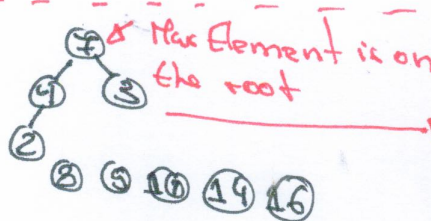 7 Max Element is on
the root
4 3
2
8 9 10 14 16